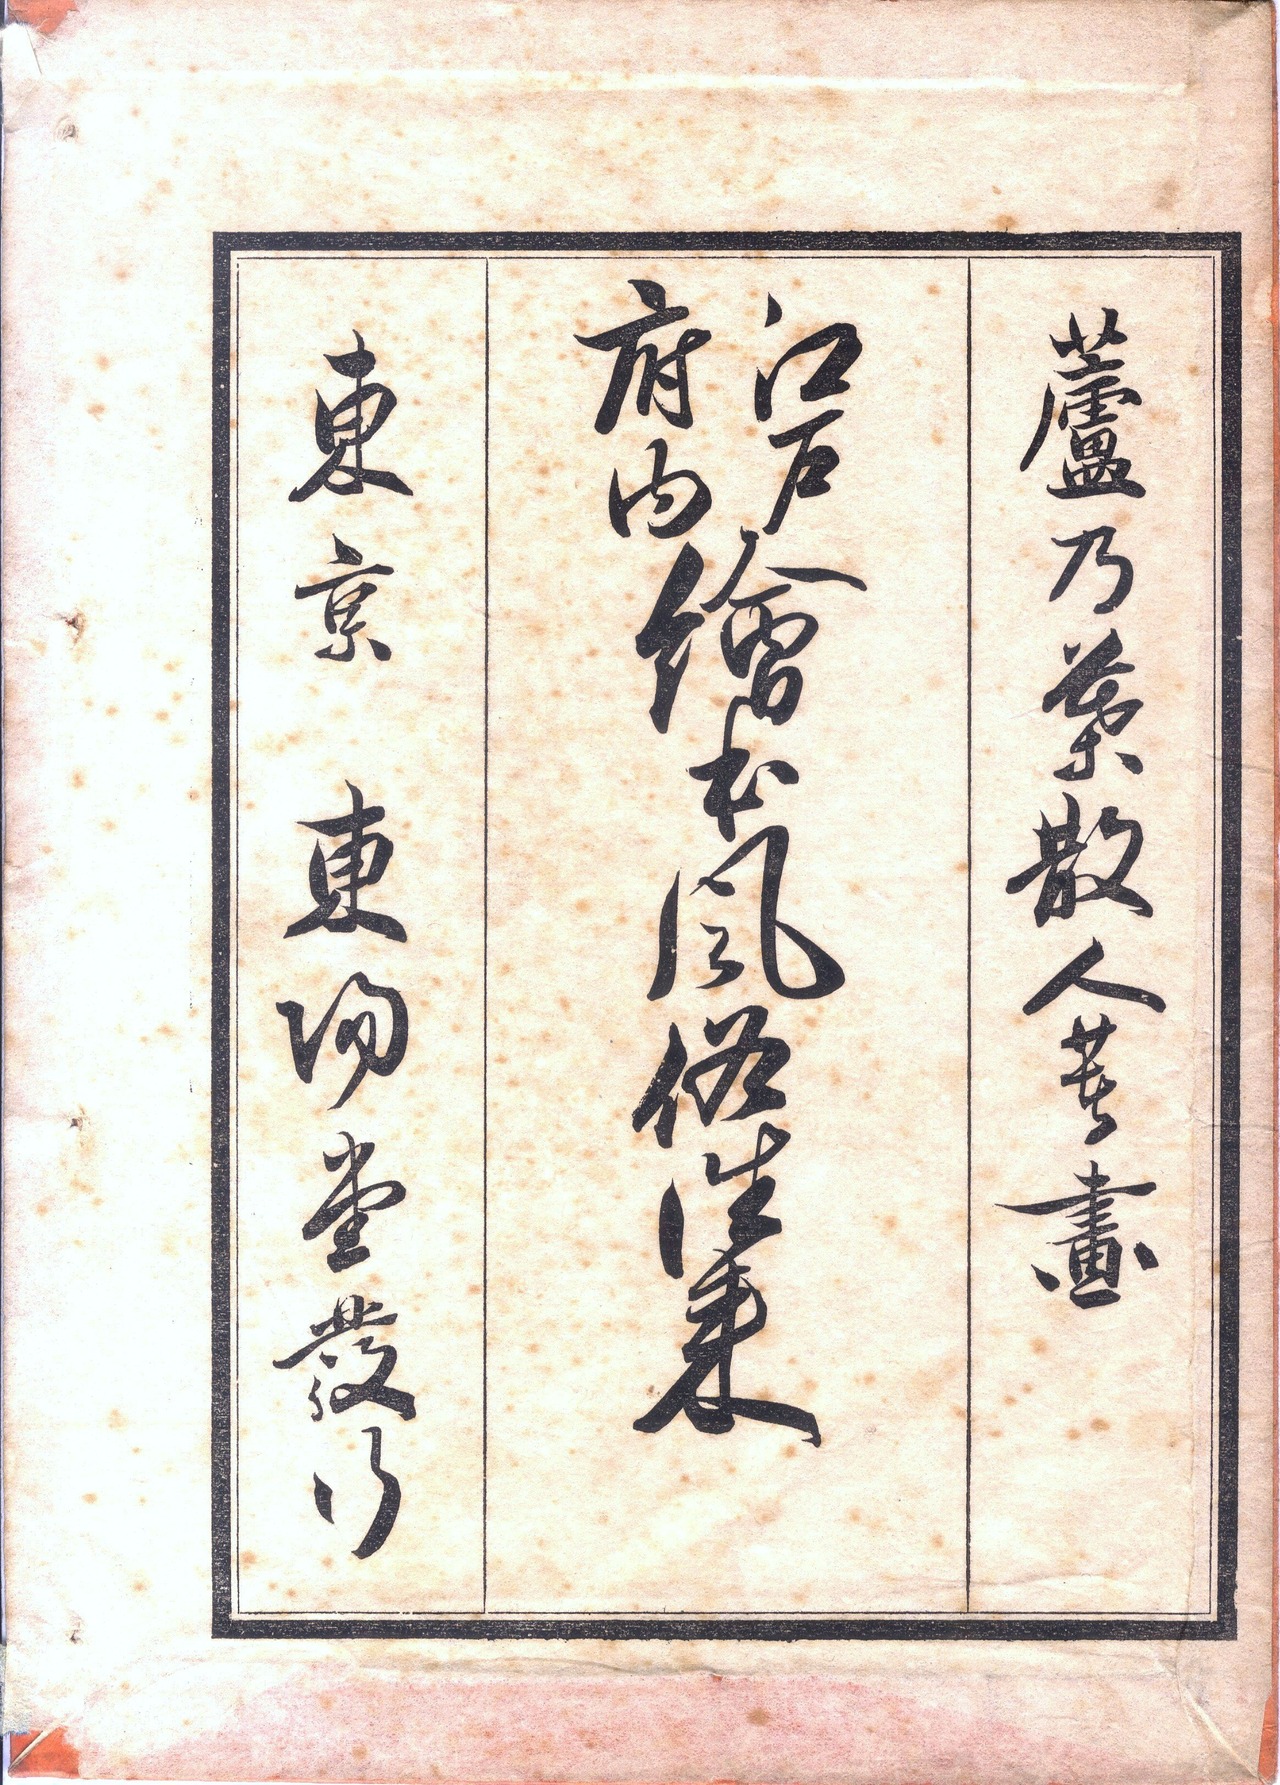 蘆乃葉散人著畫
江戸府内繪本風俗往来
東京 東陽堂發行